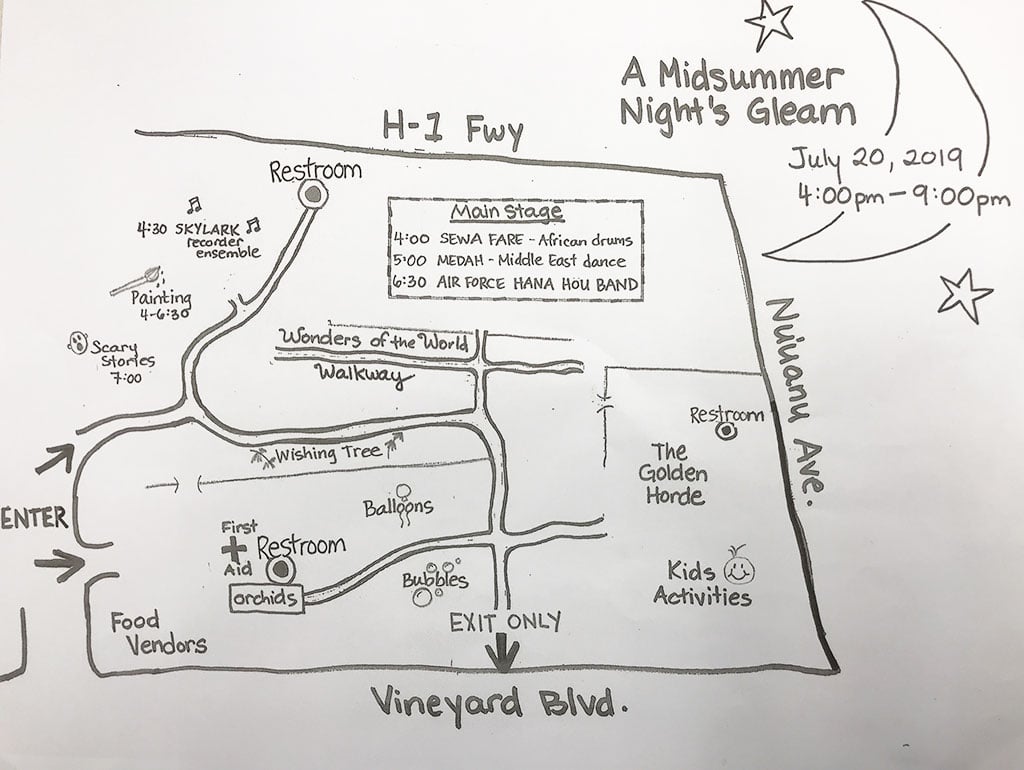 A Midsummer
Night's Gleam
July 20, 2019
4:00pm – 9:00pm
H-1 Fwy
Restroom
4:30 SKYLARK
recorder
ensemble
Painting
4-6:30
Scary
Stories
7:00
Main Stage
4:00 SEWA FARE - African drums
5:00 MEDAH - Middle East dance
6:30 AIR FORCE HANA HOU BAND
Wonders of the World
Walkway
Nuuanu Ave.
Restroom
The
Golden
Horde
Wishing Tree
ENTER
Balloons
First
Aid
Restroom
orchids
Bubbles
Kids
Activities
Food
Vendors
EXIT ONLY
Vineyard Blvd.